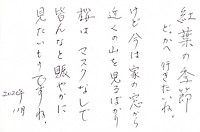 紅葉の季節
どこかへ行きたいね。
けど今は家の窓から
近くの山を見るばかり
桜はマスクなしで
皆んなと賑やかに
見たいものですね。
2020年
11月